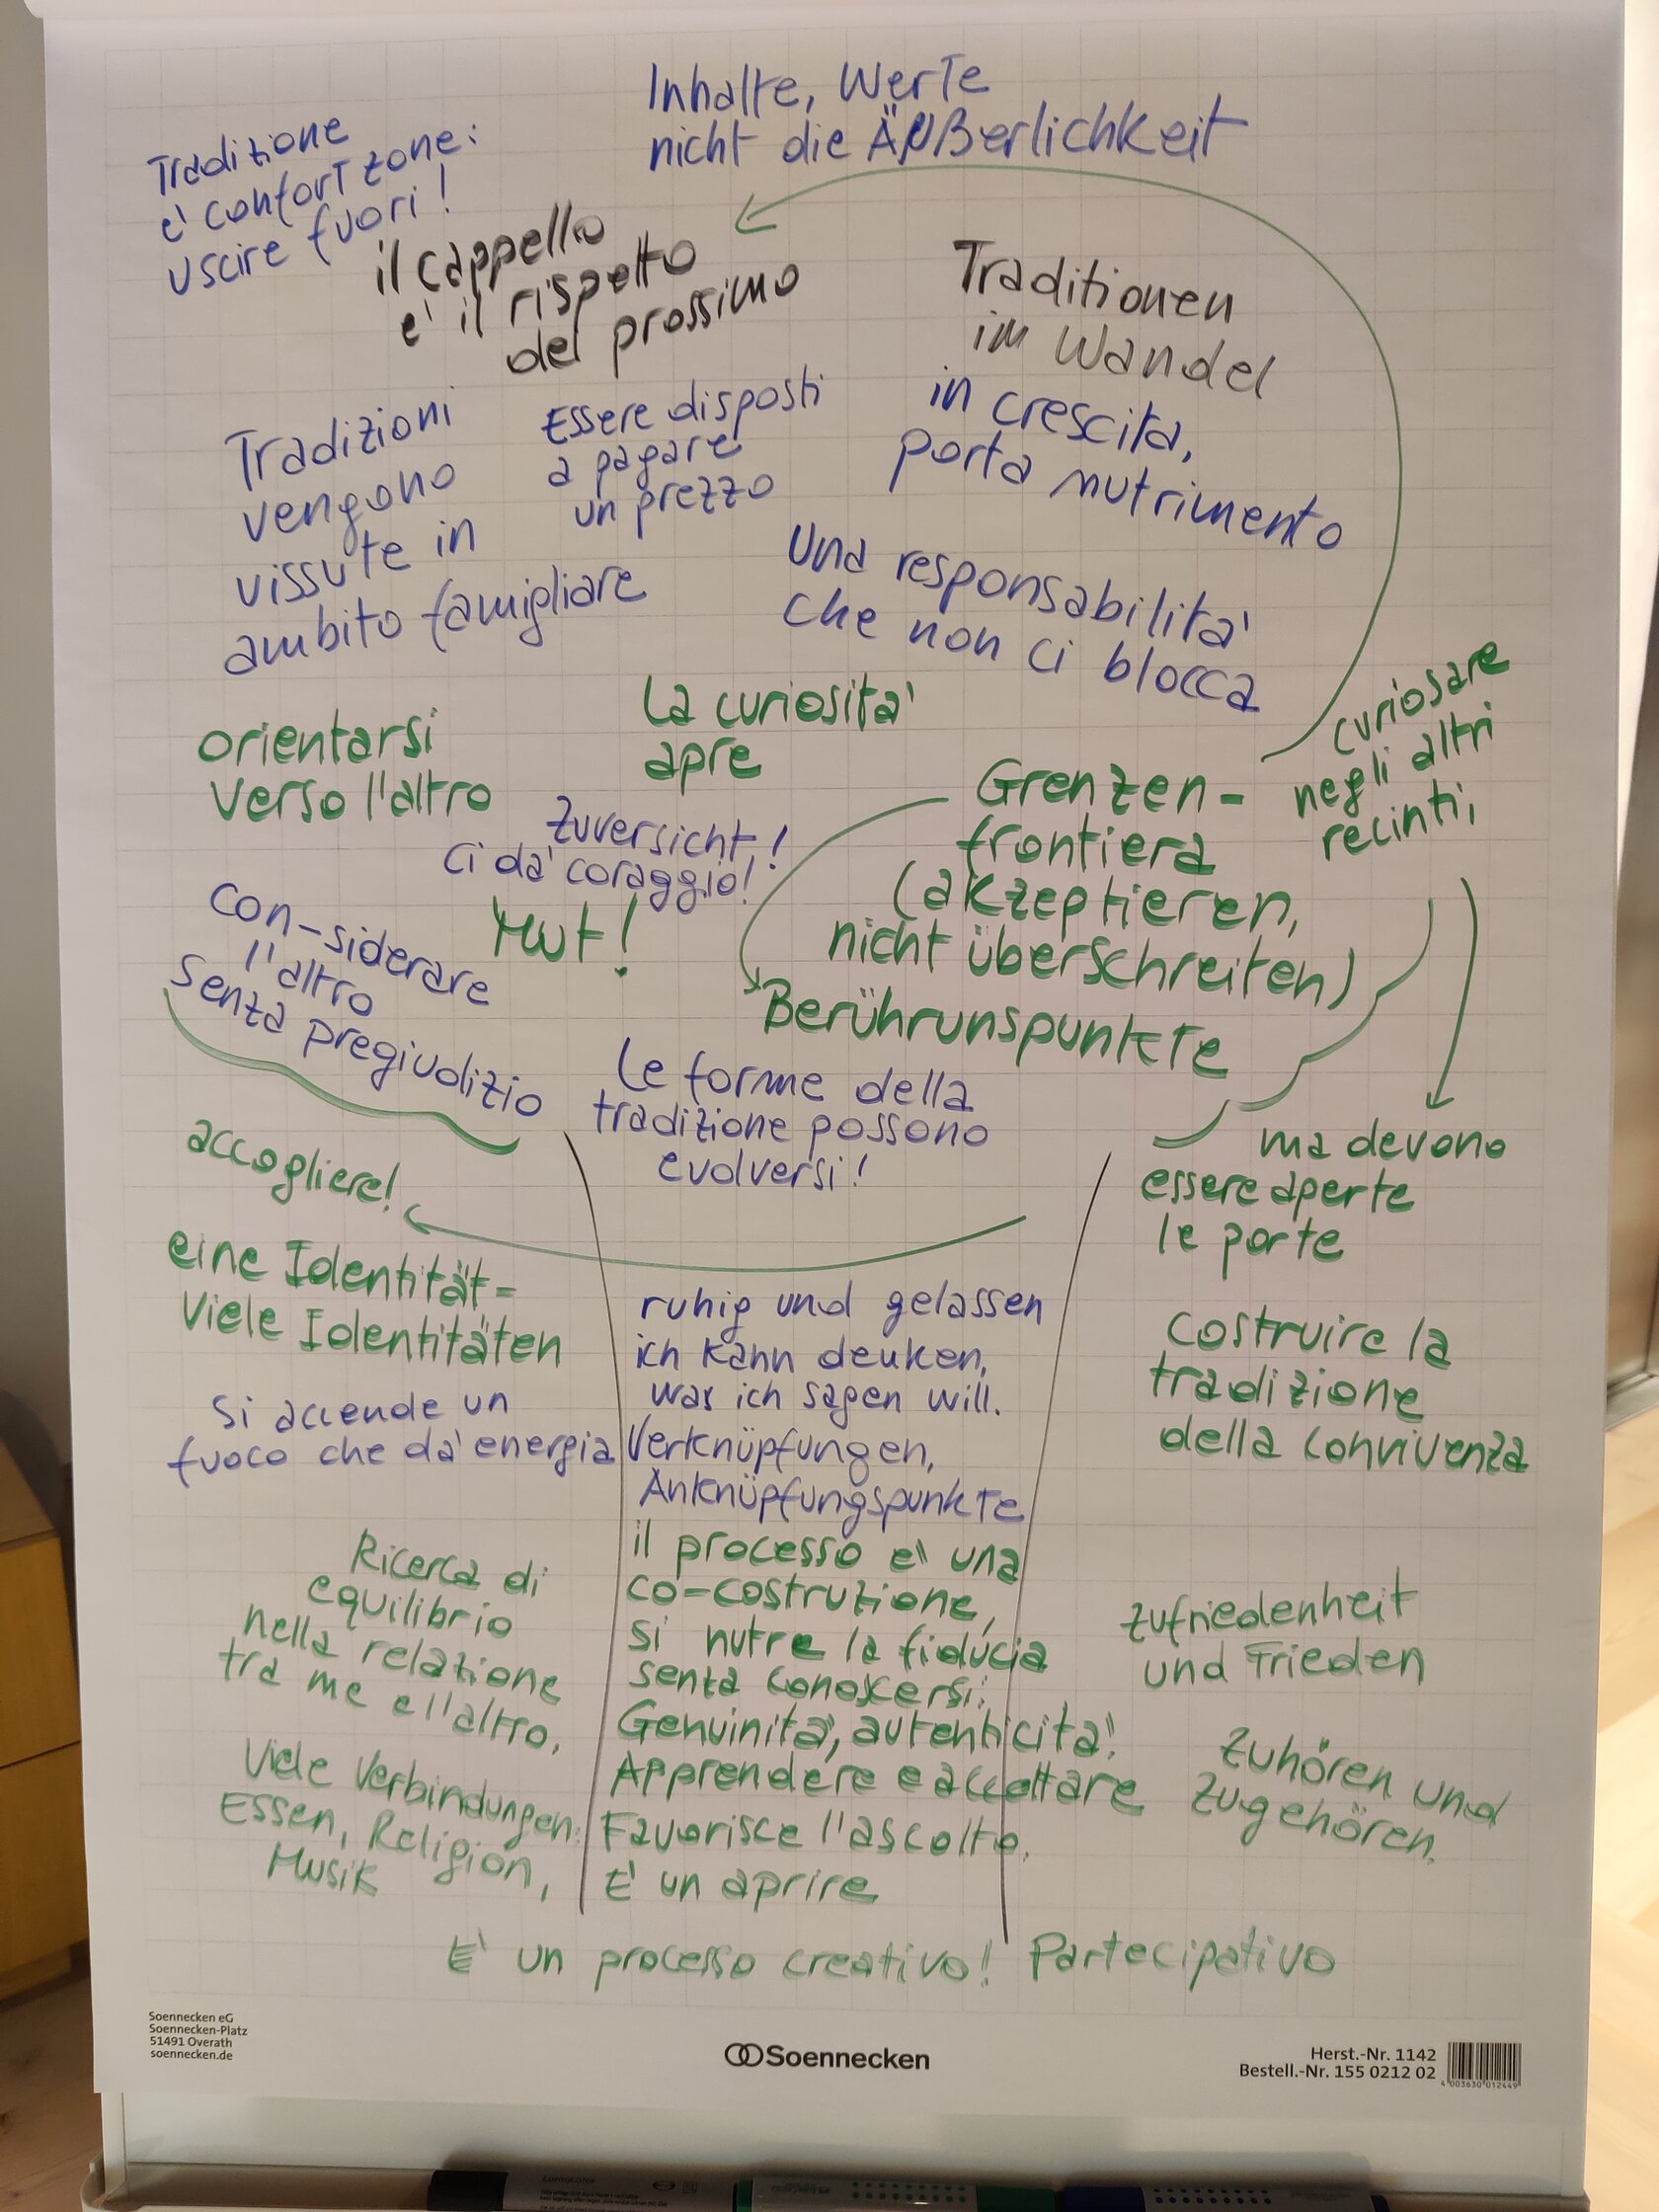 Inhalte, Werte
nicht die Äußerlichkeit
Traditione
e' confort zone:
uscire fuori!
il cappello
e' il rispetto
del prossimo
Traditionen
im Wandel
in crescita,
porta nutrimento
Tradizioni
vengono
vissute in
ambito famigliare
Essere disposti
a pagare
un prezzo
Una responsabilita'
che non ci blocca
orientarsi
verso l'altro
La curiosita'
apre
curiosare
negli altri
recinti,
Grenzen-
frontiera
(akzeptieren,
nicht überschreiten)
Berührunspunkte
Zuversicht,!
ci da' coraggio!
Mut!
con-siderare
l'altro
senza pregiudizio
Le forme della
tradizione possono
evolversi!
accogliere!
ma devono
essere aperte
le porte
eine Identität-
viele Identitäten
si accende un
fuoco che da' energia
ruhig und gelassen
ich kann denken,
was ich sagen will.
Verknüpfungen,
Anknüpfungspunkte
il processo e' una
co-costruzione,
si nutre la fiducia
senza conoscersi;
Genuinita', autenticita'.
Apprendere e accettare
Favorisce l'ascolto.
E' un aprire
costruire la
tradizione
della convivenza
Ricerca di
equilibrio
nella relazione
tra me e l'altro,
Viele Verbindungen:
Essen, Religion,
Musik
Zufriedenheit
und Frieden
Zuhören und
zugehören.
E' un processo creativo! Partecipativo
Soennecken eG
Soennecken-Platz
51491 Overath
soennecken.de
Soennecken
Herst.-Nr. 1142
Bestell.-Nr. 155 0212 02
4 003630 012449